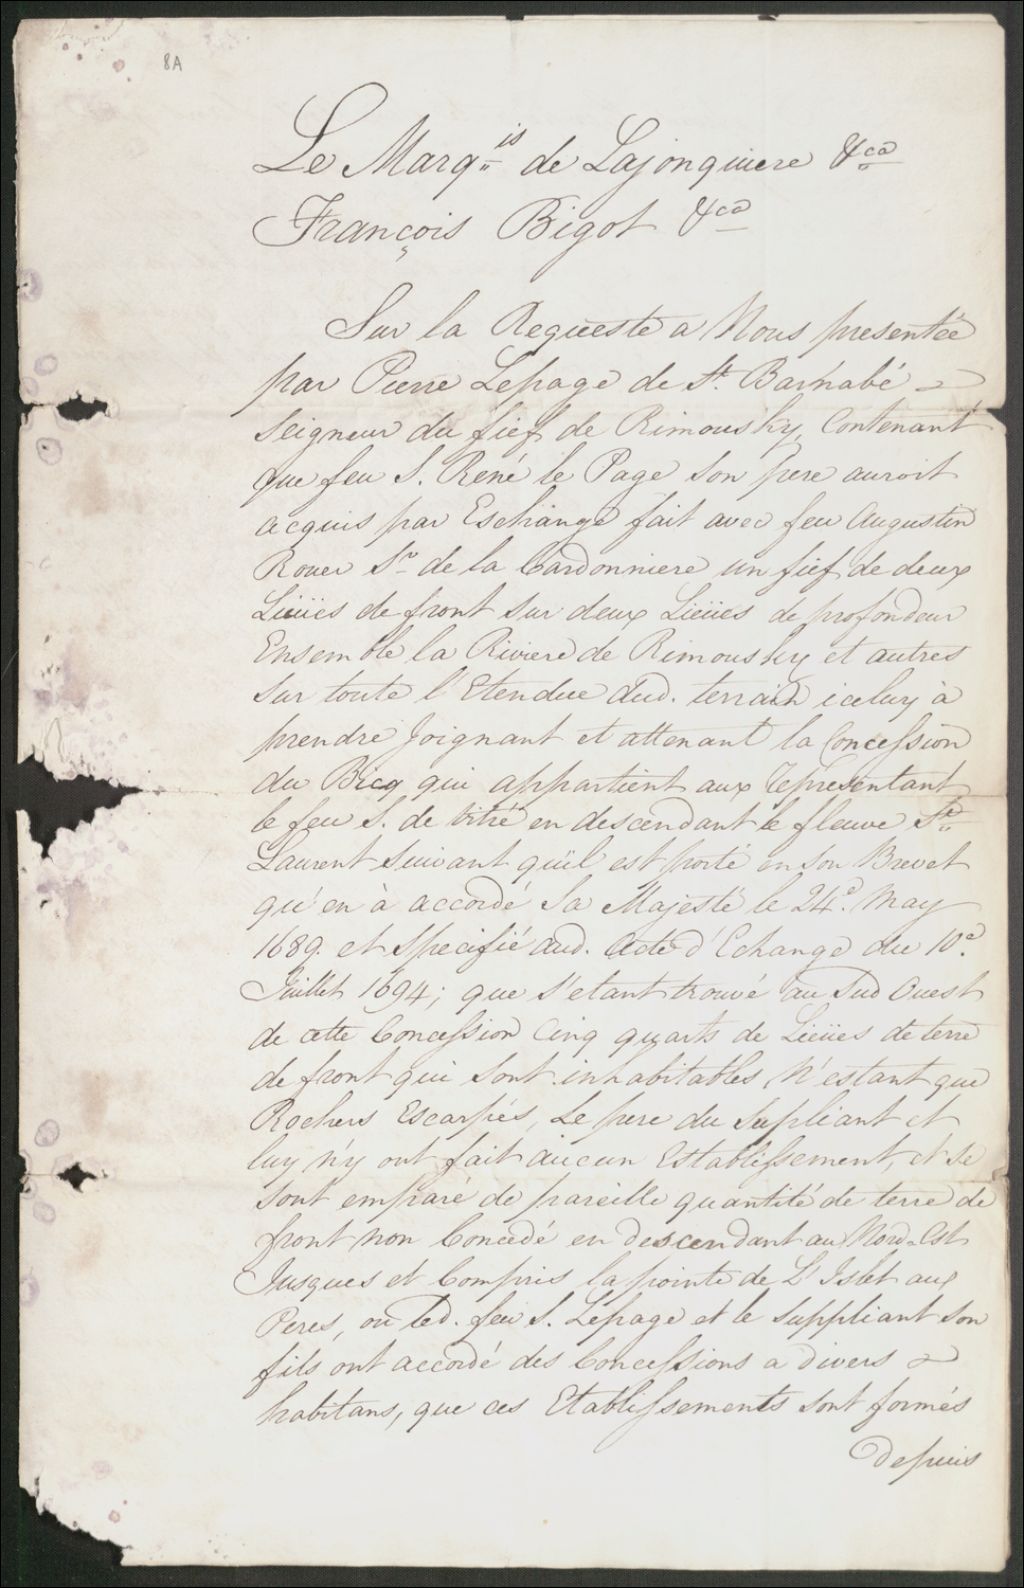 8A
Le Marq.is de Lajonquiere &ca
François Bigot &ca
Sur la Requeste a Nous presentée
par Pierre Lepage de St. Barnabé
Seigneur du fief de Rimousky, Contenant
que feu S. René le Page Son pere auroit
acquis par Eschange fait avec feu Augustin
Rouer Sr. de la Cardonniere un fief de deux
Liëües de front Sur deux Liëües de profondeur
Ensemble la Riviere de Rimousky et autres
Sur toute l'Etendue dud. terrain iceluy à
prendre Joignant et attenant la Concession
du Bicq qui appartient aux representant
le feu S. de Vitré en descendant le fleuve St.
Laurent Suivant qu'il est porté en Son Brevet
qu'en à accordé Sa Majesté le 24e. May
1689. et Specifié aud. Acte d'Echange du 10e.
Juillet 1694; que S'etant trouvé au Sud Ouest
de cette Concession Cinq quarts de Liëües de terre
de front qui Sont inhabitables, N'estant que
Rochers Escarpés, Le pere du Supliant et
luy n'y ont fait aucun Etablissement, et se
Sont emparé de pareille quantité de terre de
front non Concedé en descendant au Nord-Est
Jusques et Compris la pointe de L'Islet aux
Peres, ou led. feu S. Lepage et le Suppliant Son
fils ont accordé des Concessions a divers
habitans, que ces Etablissements Sont formés
depuis